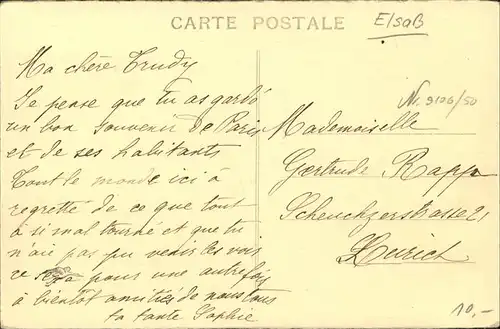 CARTE POSTALE
Elsaß
Nr. 9106/50
Ma chère Trudy
Je pense que tu as gardé
un bon souvenir de Paris
et de ses habitants
Tout le monde ici à
regretté de ce que tout
a si mal tourné et que tu
n'aie pas pu venir les voir
ce sera pour une autre fois
à bientôt amitiés de nous tous
ta tante Sophie
Mademoiselle
Gertrude Rapp
Scheuchzerstrasse 21
Zurich
10.-